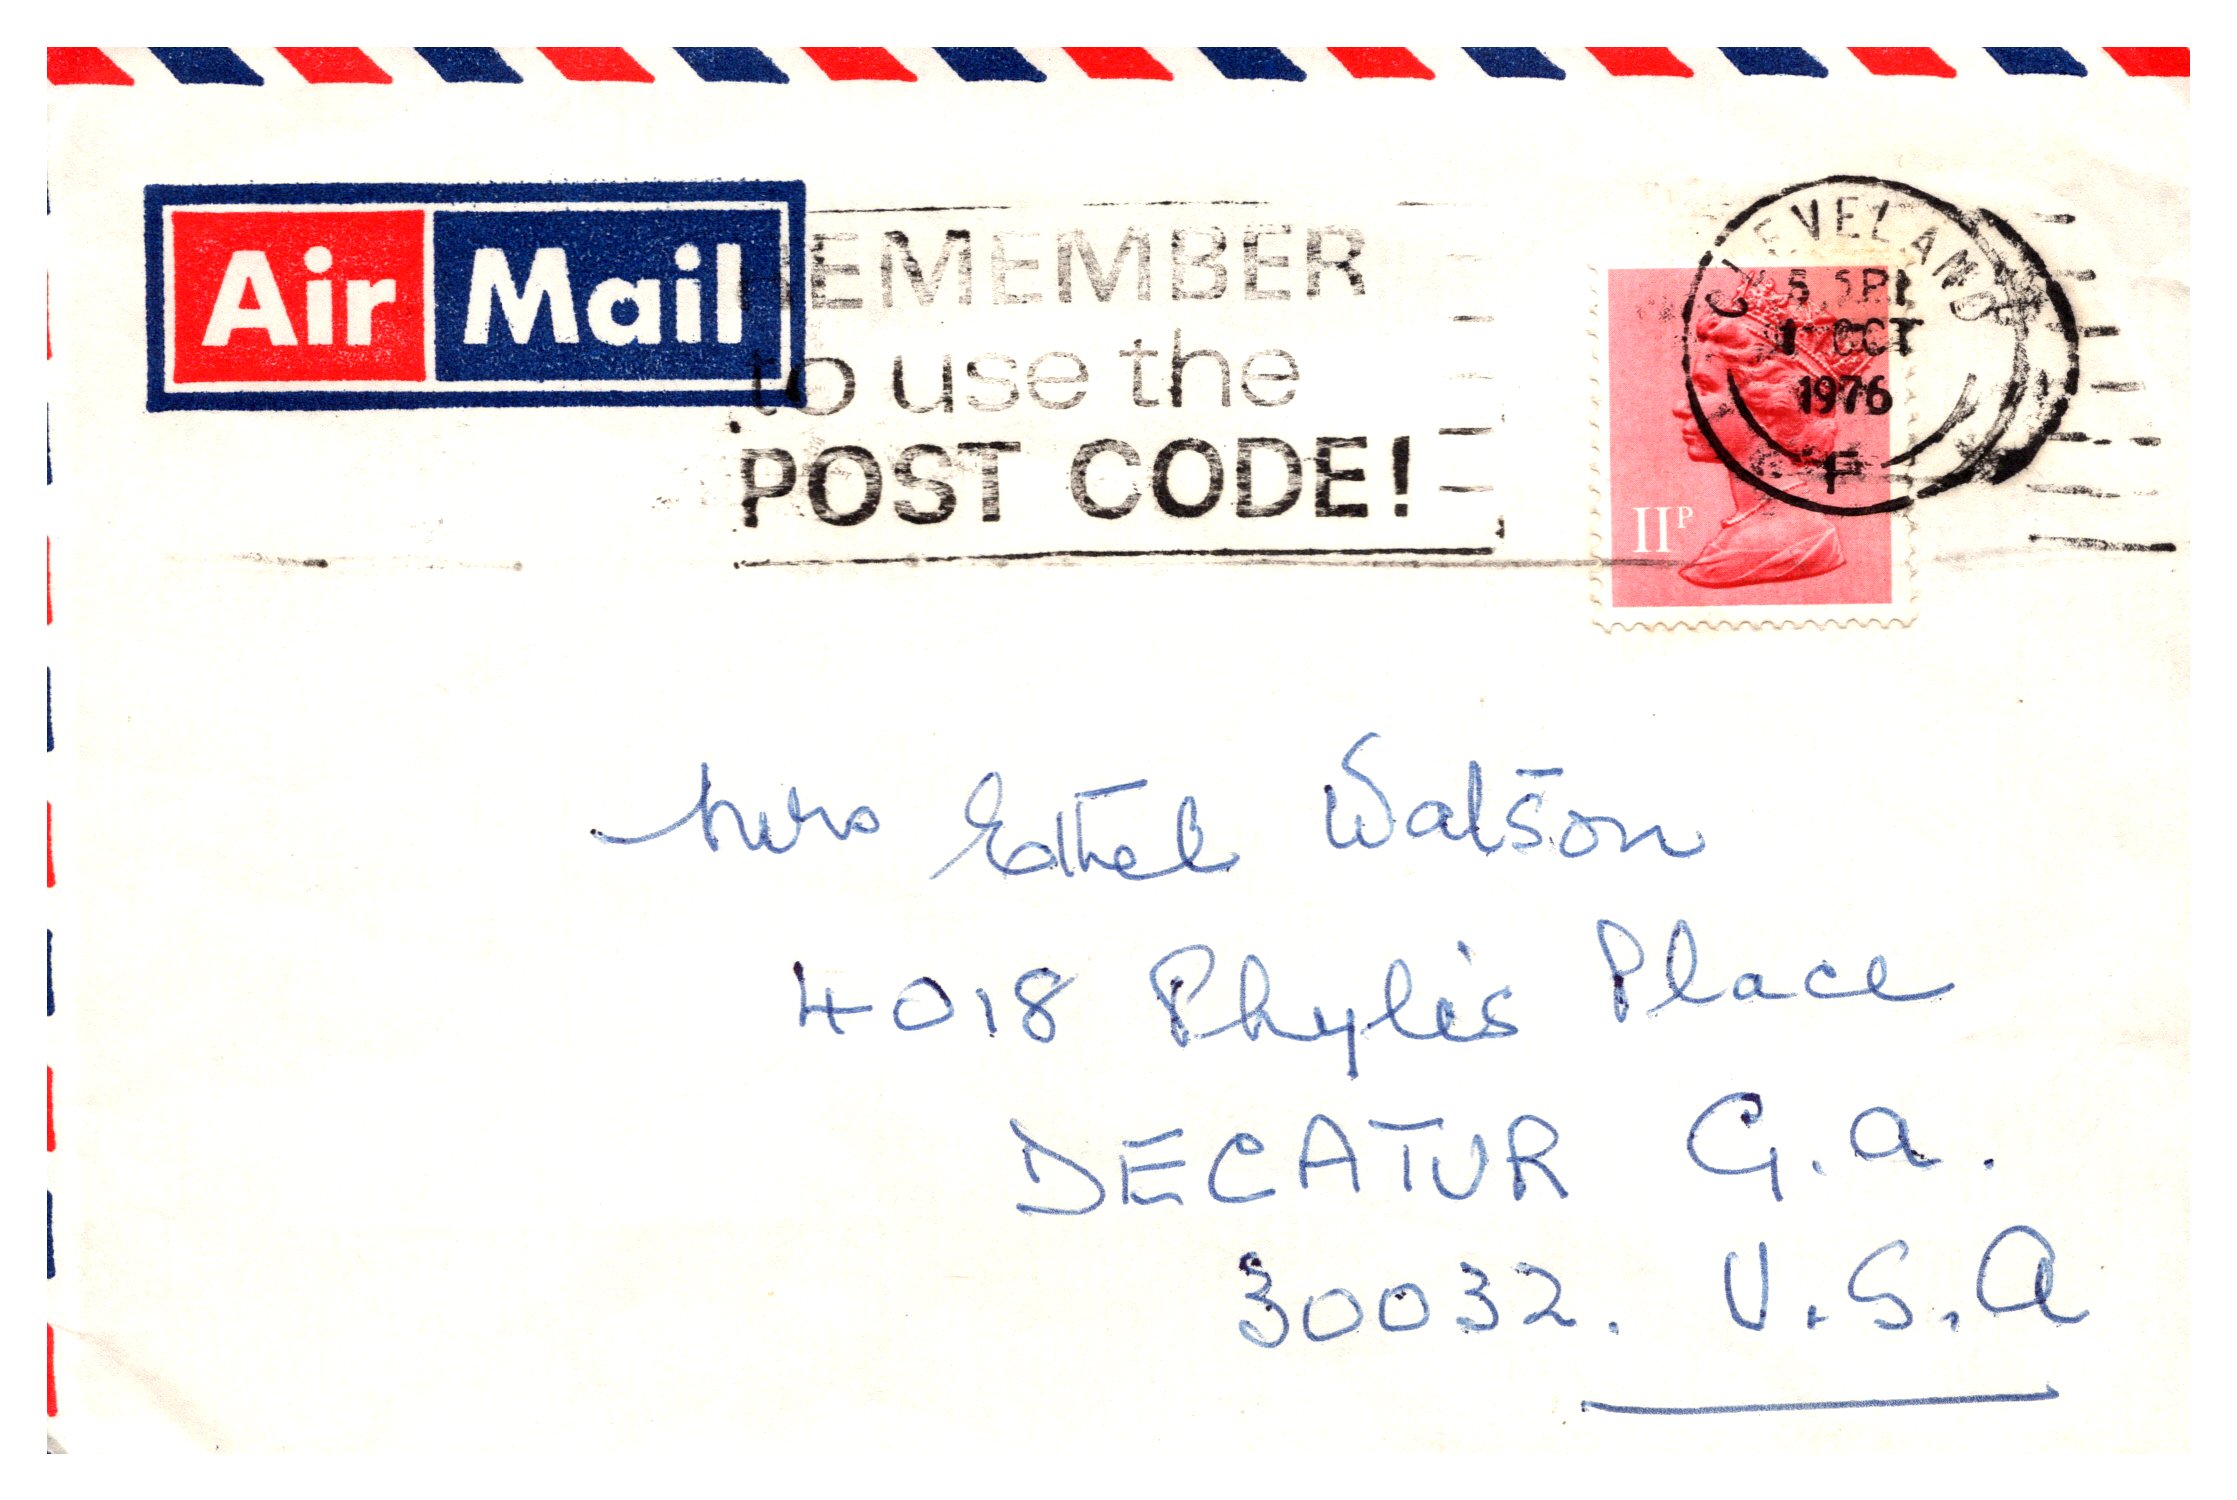 Air Mail
REMEMBER
to use the
POST CODE!
CLEVELAND
1 OCT
1976
F
11P
Mrs Ethel Watson
4018 Phylis Place
DECATUR G.a.
30032. U.S.A